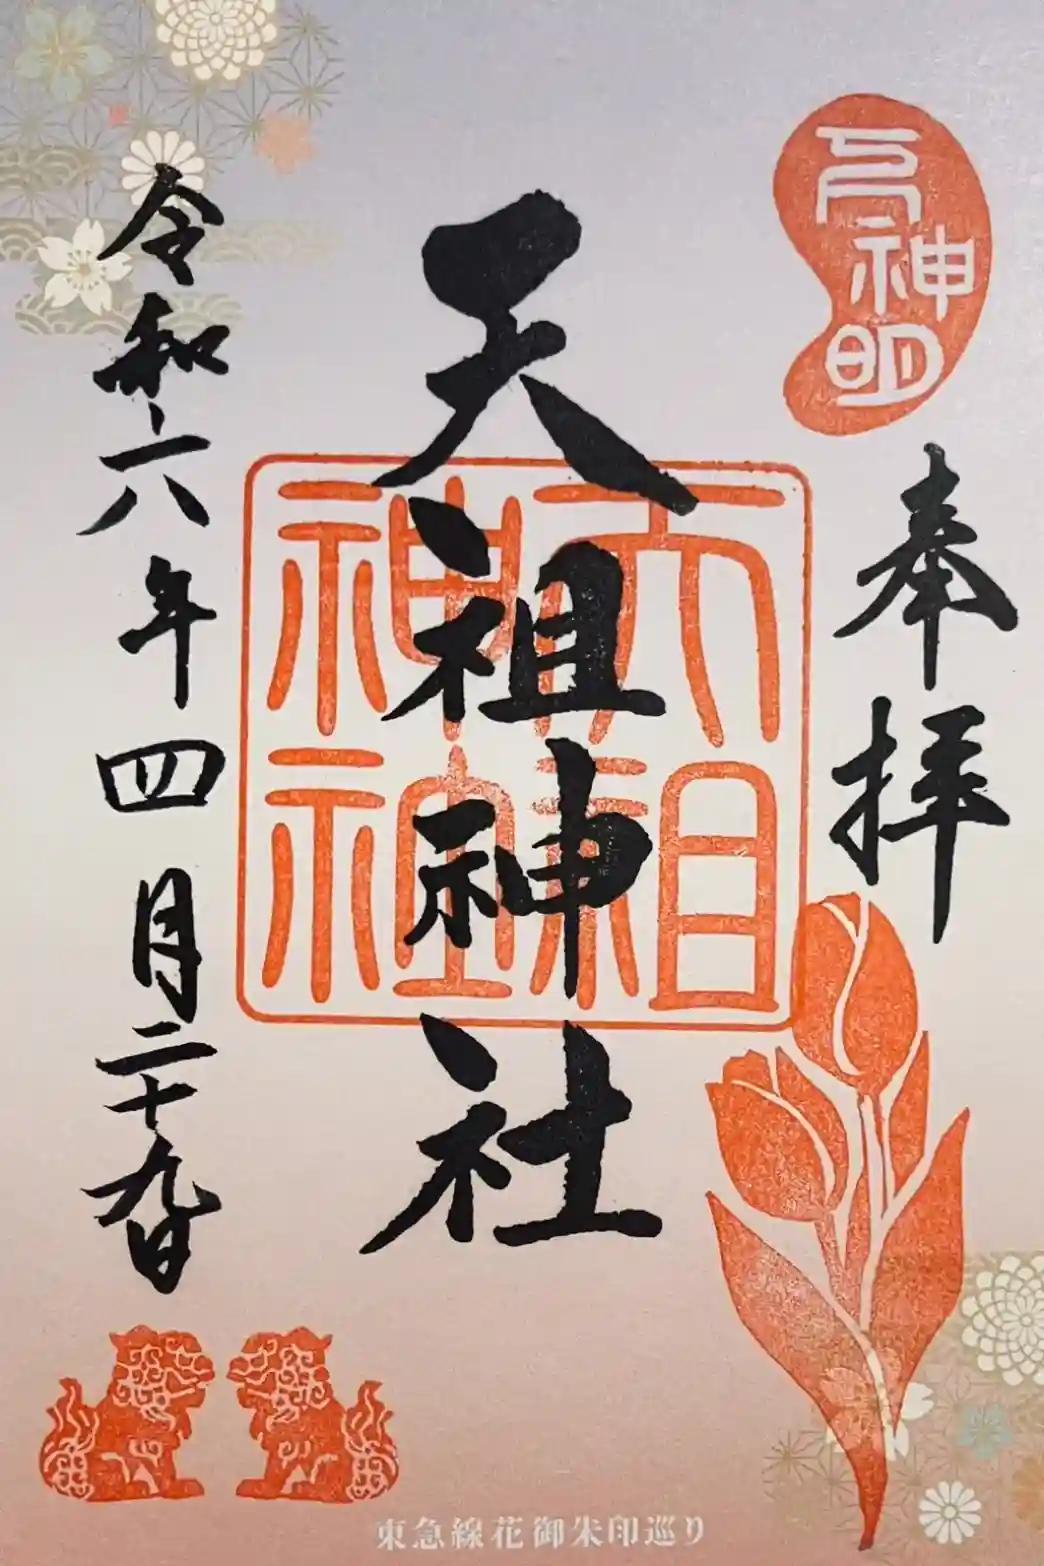 下神明
奉拝
天祖神社
天祖
神社
令和六年四月二十九日
東急線花御朱印巡り